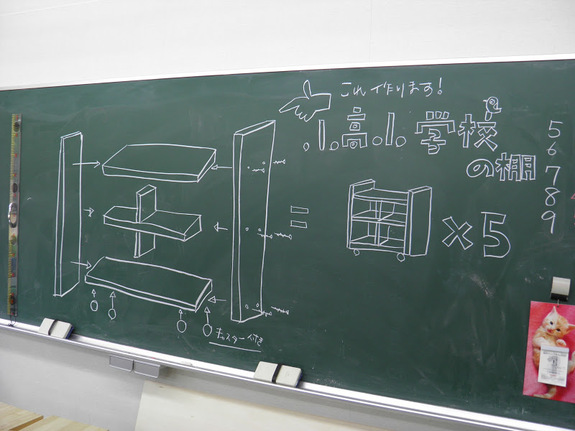 これ作ります!
小高小学校
の棚
=
×5
キャスター付き
5
6
7
8
9